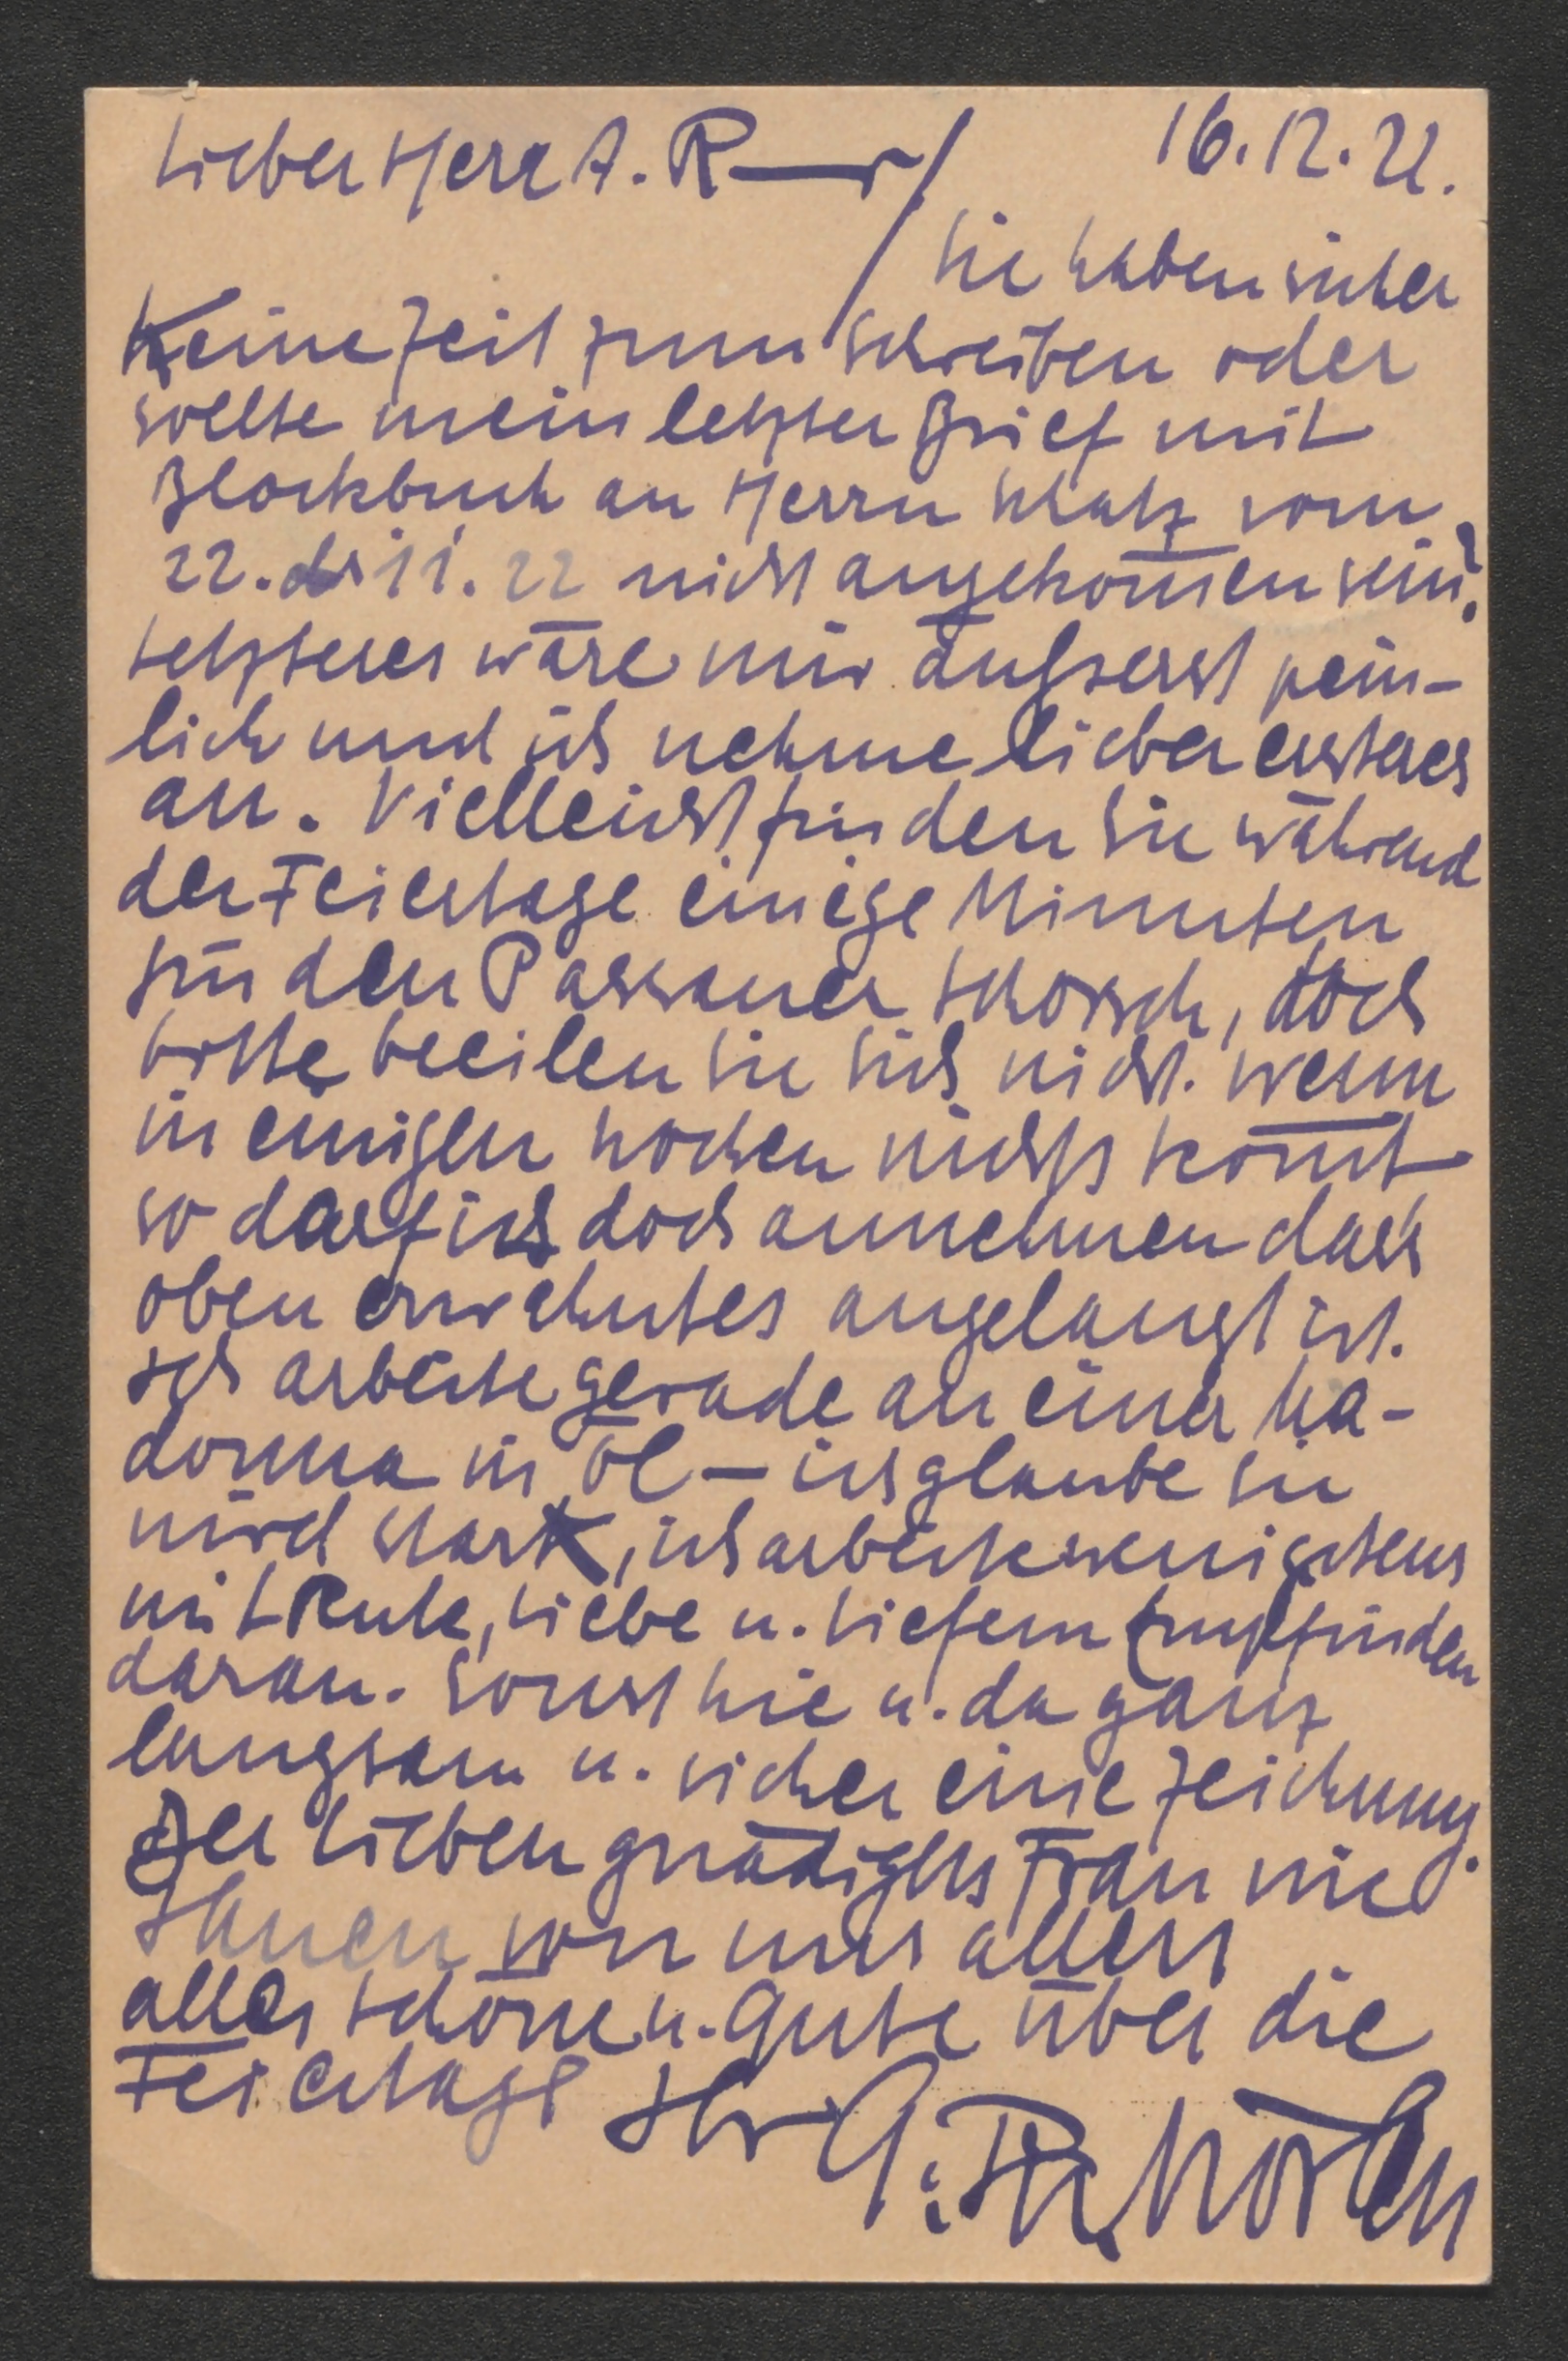 Lieber Herr A. R—r/ 16.12.22.
Sie haben sicher
Keine Zeit zum Schreiben oder
sollte mein letzter Brief mit
Blockbuch an Herrn Schatz vom
22. 11. 22 nicht angekom̅en sein?
Letzteres wäre mir äußserst pein-
lich und ich nehme lieber ersteres
an. Vielleicht finden Sie während
der Feiertage einige Minuten
für den Passauer Schorsch, doch
bitte beeilen Sie sich nicht. Wenn
in einigen Wochen nichts kom̅t
so darf ich doch annehmen dass
oben erwehntes angelangt ist.
Ich arbeite gerade an einer Ma-
donna in Öl — ich glaube sie
wird stark, ich arbeite wenigstens
mit Ruhe, Liebe u. tiefem Empfinden
daran. Sonst hie u. da ganz
langsam u. sicher eine Zeichnung.
Der lieben gnädigen Frau wie
Ihnen von uns allen
alles schöne u. Gute über die
Feiertage Ihr G. Ph. Wörlen